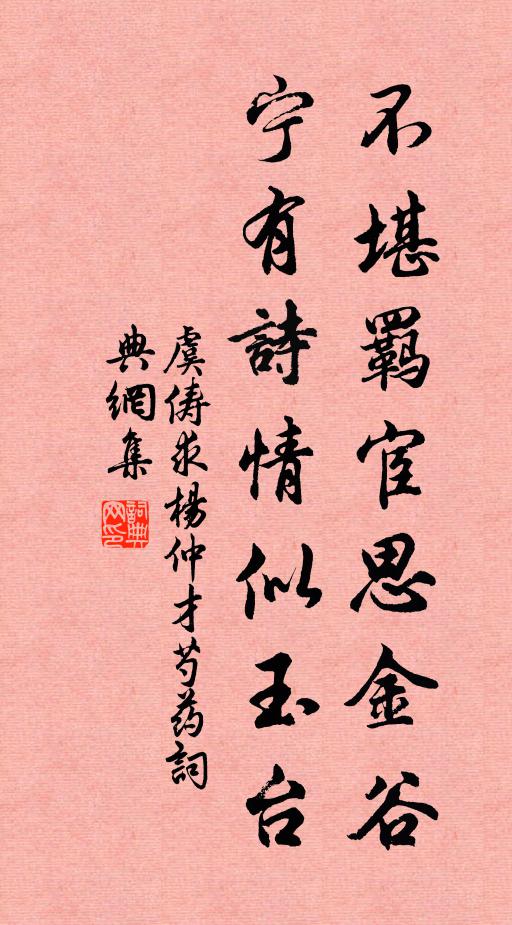 不堪羁宦思金谷
宁有詩情似玉台
虞俦求楊仲才芍药詞
典網集
詞典网印